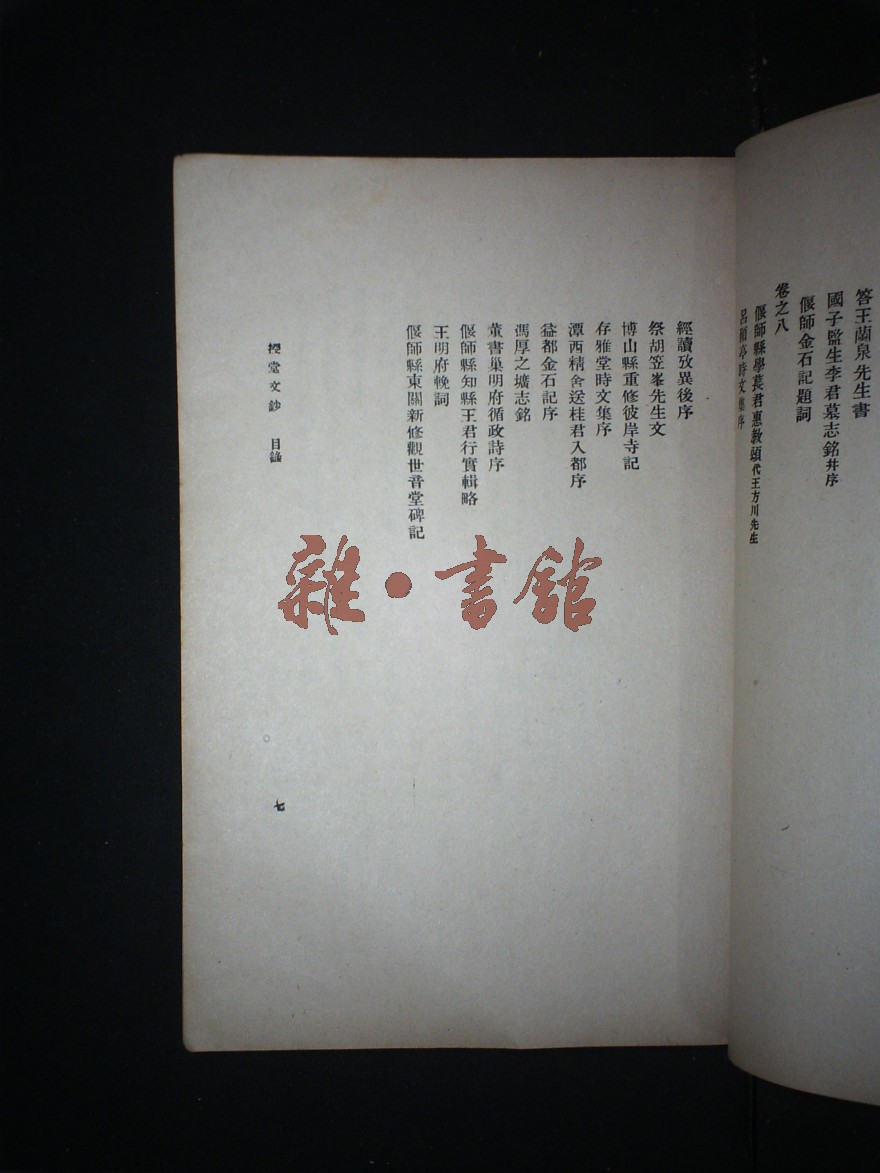 答王蘭泉先生書
國子監生李君墓志銘并序
偃師金石記題詞
卷之八
偃師縣學萇君惠教頌代王方川先生
時文集序
經讀攷異後序
祭胡笠峯先生文
博山縣重修彼岸寺記
存雅堂時文集序
潭西精舍送桂君入都序
益都金石記序
馮厚之壙志銘
董書巢明府循政詩序
偃師縣知縣王君行實輯略
王明府輓詞
偃師縣東關新修觀世音堂碑記
授堂文鈔 目錄
七
雜·書館